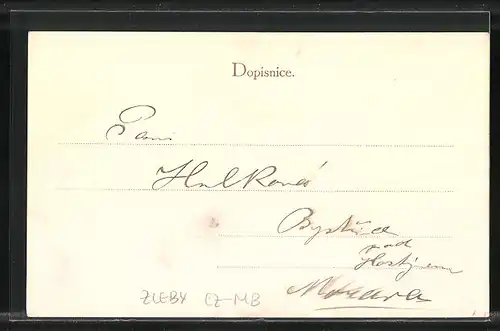 Dopisnice.
Paní
Hulkové
Bystřice
pod
Hostýnem
Morava
ZLEBY CZ-MB